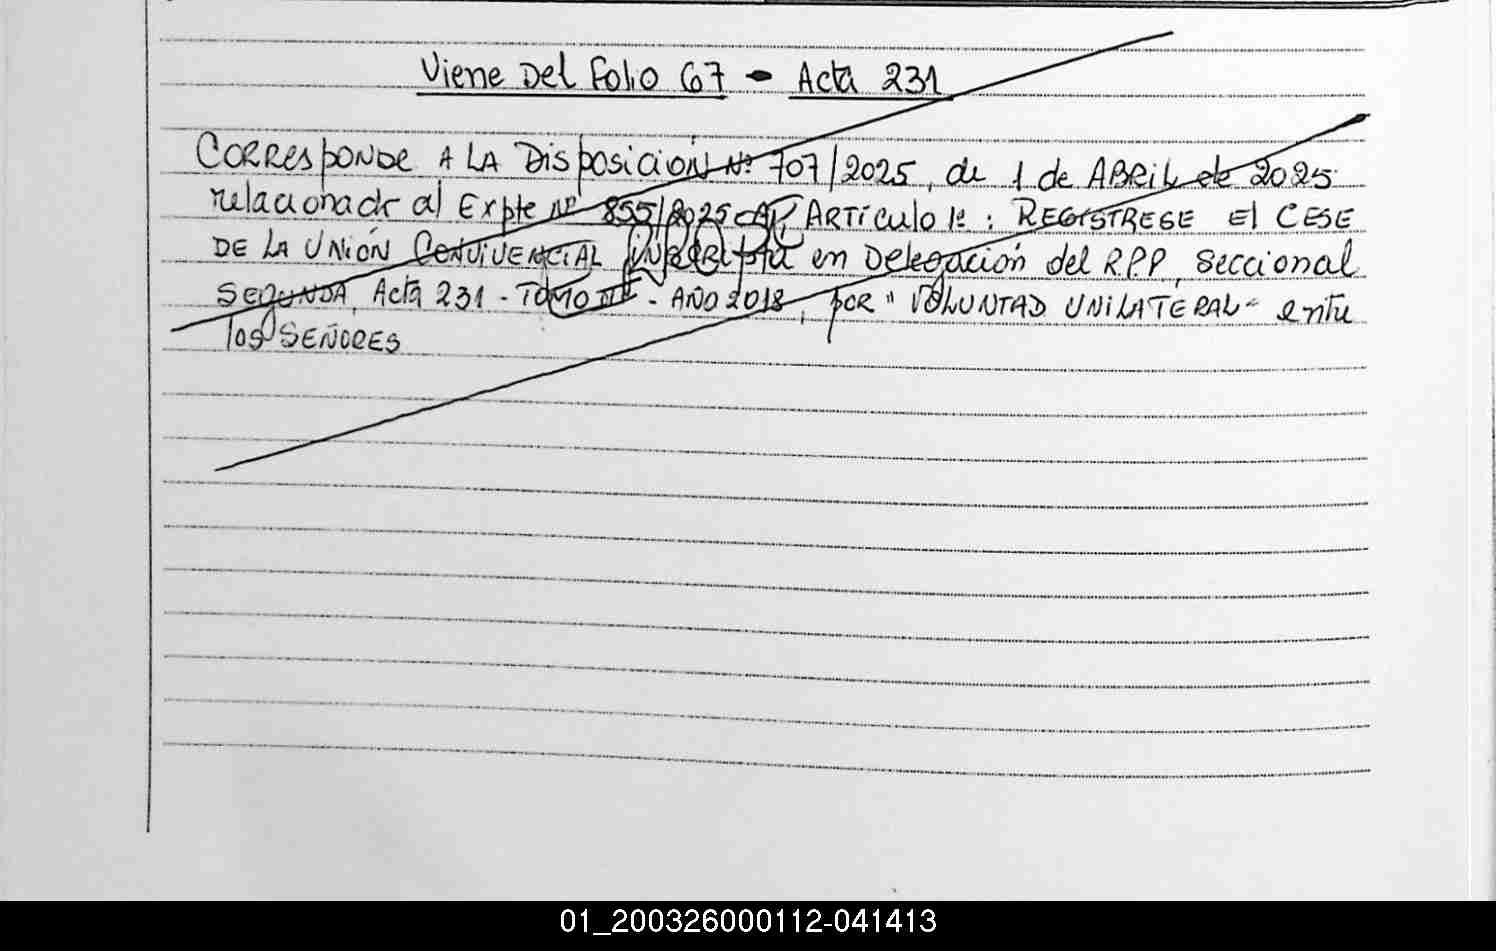 Viene Del Folio 67 - Acta 231
CORResponde A LA Disposición Nº 707/2025, de 1 de ABRiL de 2025
relacionado al Expte Nº 855/2025-AP, ARTículo 1º: REGÍSTRESE El CESE
DE LA UNIÓN CONVIVENCIAL INSCRIPTA en Delegación del R.P.P, Seccional
SEGUNDA, Acta 231 - TOMO III - AÑO 2018, por "VOLUNTAD UNILATERAL" entre
los SEÑORES
01_200326000112-041413